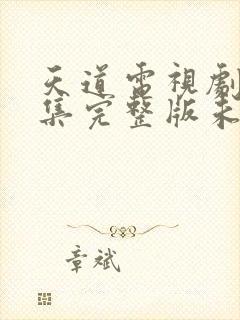 天道電視劇
集完整版未
章斌